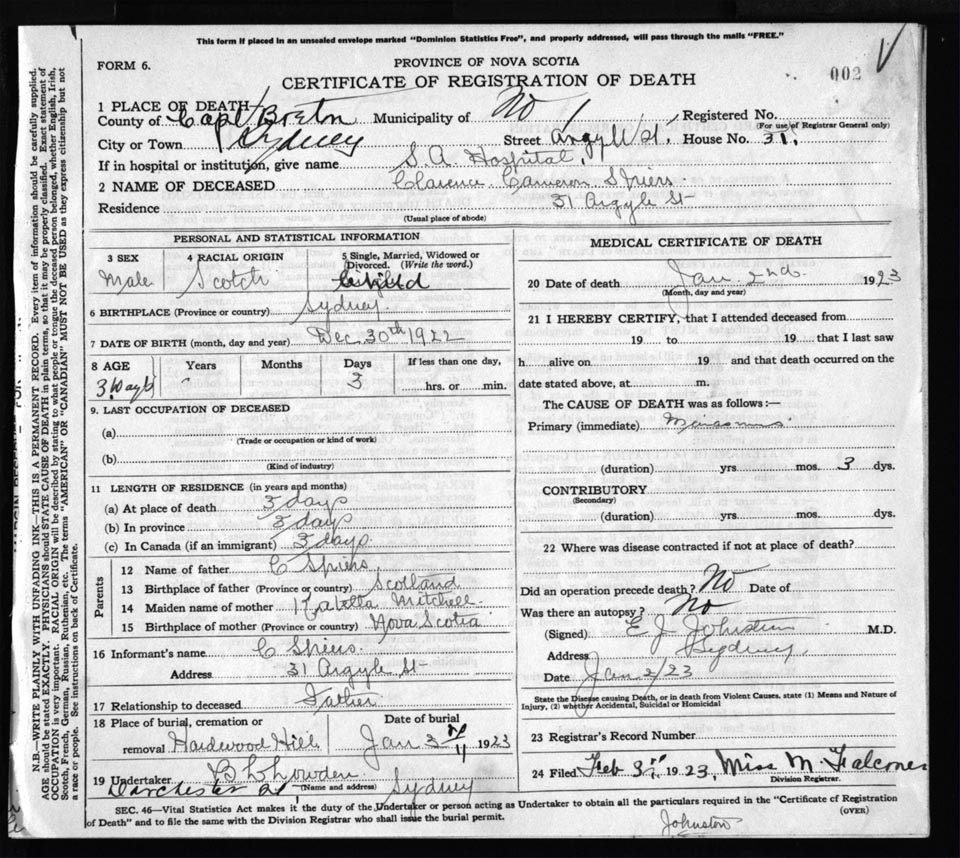 This form if placed in an unsealed envelope marked "Dominion Statistics Free", and properly addressed, will pass through the mails "FREE."
FORM 6.
PROVINCE OF NOVA SCOTIA
002
CERTIFICATE OF REGISTRATION OF DEATH
1 PLACE OF DEATH
County of Cape Breton Municipality of No Registered No.
(For use of Registrar General only)
City or Town Sydney Street Argyle St, House No. 31,
If in hospital or institution, give name S. A. Hospital,
2 NAME OF DECEASED Clarence Cameron Spiers
Residence 31 Argyle St
(Usual place of abode)
PERSONAL AND STATISTICAL INFORMATION
3 SEX 4 RACIAL ORIGIN 5 Single, Married, Widowed or Divorced. (Write the word.)
Male Scotch Child
6 BIRTHPLACE (Province or country) Sydney.
7 DATE OF BIRTH (month, day and year) Dec 30th 1922
8 AGE Years Months Days If less than one day,
3 Days 3 hrs. or min.
9. LAST OCCUPATION OF DECEASED
(a)
(Trade or occupation or kind of work)
(b)
(Kind of industry)
11 LENGTH OF RESIDENCE (in years and months)
(a) At place of death 3 days
(b) In province 3 days
(c) In Canada (if an immigrant) 3 days
Parents
12 Name of father C Spiers.
13 Birthplace of father (Province or country) Scotland
14 Maiden name of mother Izabella Mitchell.
15 Birthplace of mother (Province or country) Nova Scotia
16 Informant's name C Spiers.
Address 31 Argyle St
17 Relationship to deceased Father
18 Place of burial, cremation or removal Hardwood Hill
Date of burial Jan 3rd 1923
19 Undertaker B L Lowden
Dorchester St (Name and address) Sydney
MEDICAL CERTIFICATE OF DEATH
20 Date of death Jan 2nd. 1923
(Month, day and year)
21 I HEREBY CERTIFY, that I attended deceased from
19 to 19 that I last saw
h alive on 19 and that death occurred on the
date stated above, at m.
The CAUSE OF DEATH was as follows:—
Primary (immediate)
(duration) yrs. mos. 3 dys.
CONTRIBUTORY
(Secondary)
(duration) yrs. mos. dys.
22 Where was disease contracted if not at place of death?
Did an operation precede death? No Date of
Was there an autopsy? No
(Signed) E J Johnston M.D.
Address Sydney,
Date Jan 2/23
State the Disease causing Death, or in death from Violent Causes, state (1) Means and Nature of
Injury, (2) whether Accidental, Suicidal or Homicidal
23 Registrar's Record Number
24 Filed Feb 3rd 1923, Miss M. Falconer
Division Registrar.
SEC. 46—Vital Statistics Act makes it the duty of the Undertaker or person acting as Undertaker to obtain all the particulars required in the "Certificate of Registration
of Death" and to file the same with the Division Registrar who shall issue the burial permit.
(OVER)
Johnston
N.B.—WRITE PLAINLY WITH UNFADING INK—THIS IS A PERMANENT RECORD. Every item of information should be carefully supplied.
AGE should be stated EXACTLY. PHYSICIANS should STATE CAUSE OF DEATH in plain terms, so that it may be properly classified. Exact statement of
OCCUPATION is very important. RACIAL ORIGIN will be described by stating to what people or tongue the deceased person belonged, whether English, Irish,
Scotch, French, German, Russian, Ruthenian, etc. The terms "AMERICAN" or "CANADIAN" MUST NOT BE USED as they express citizenship but not
a race or people. See instructions on back of Certificate.